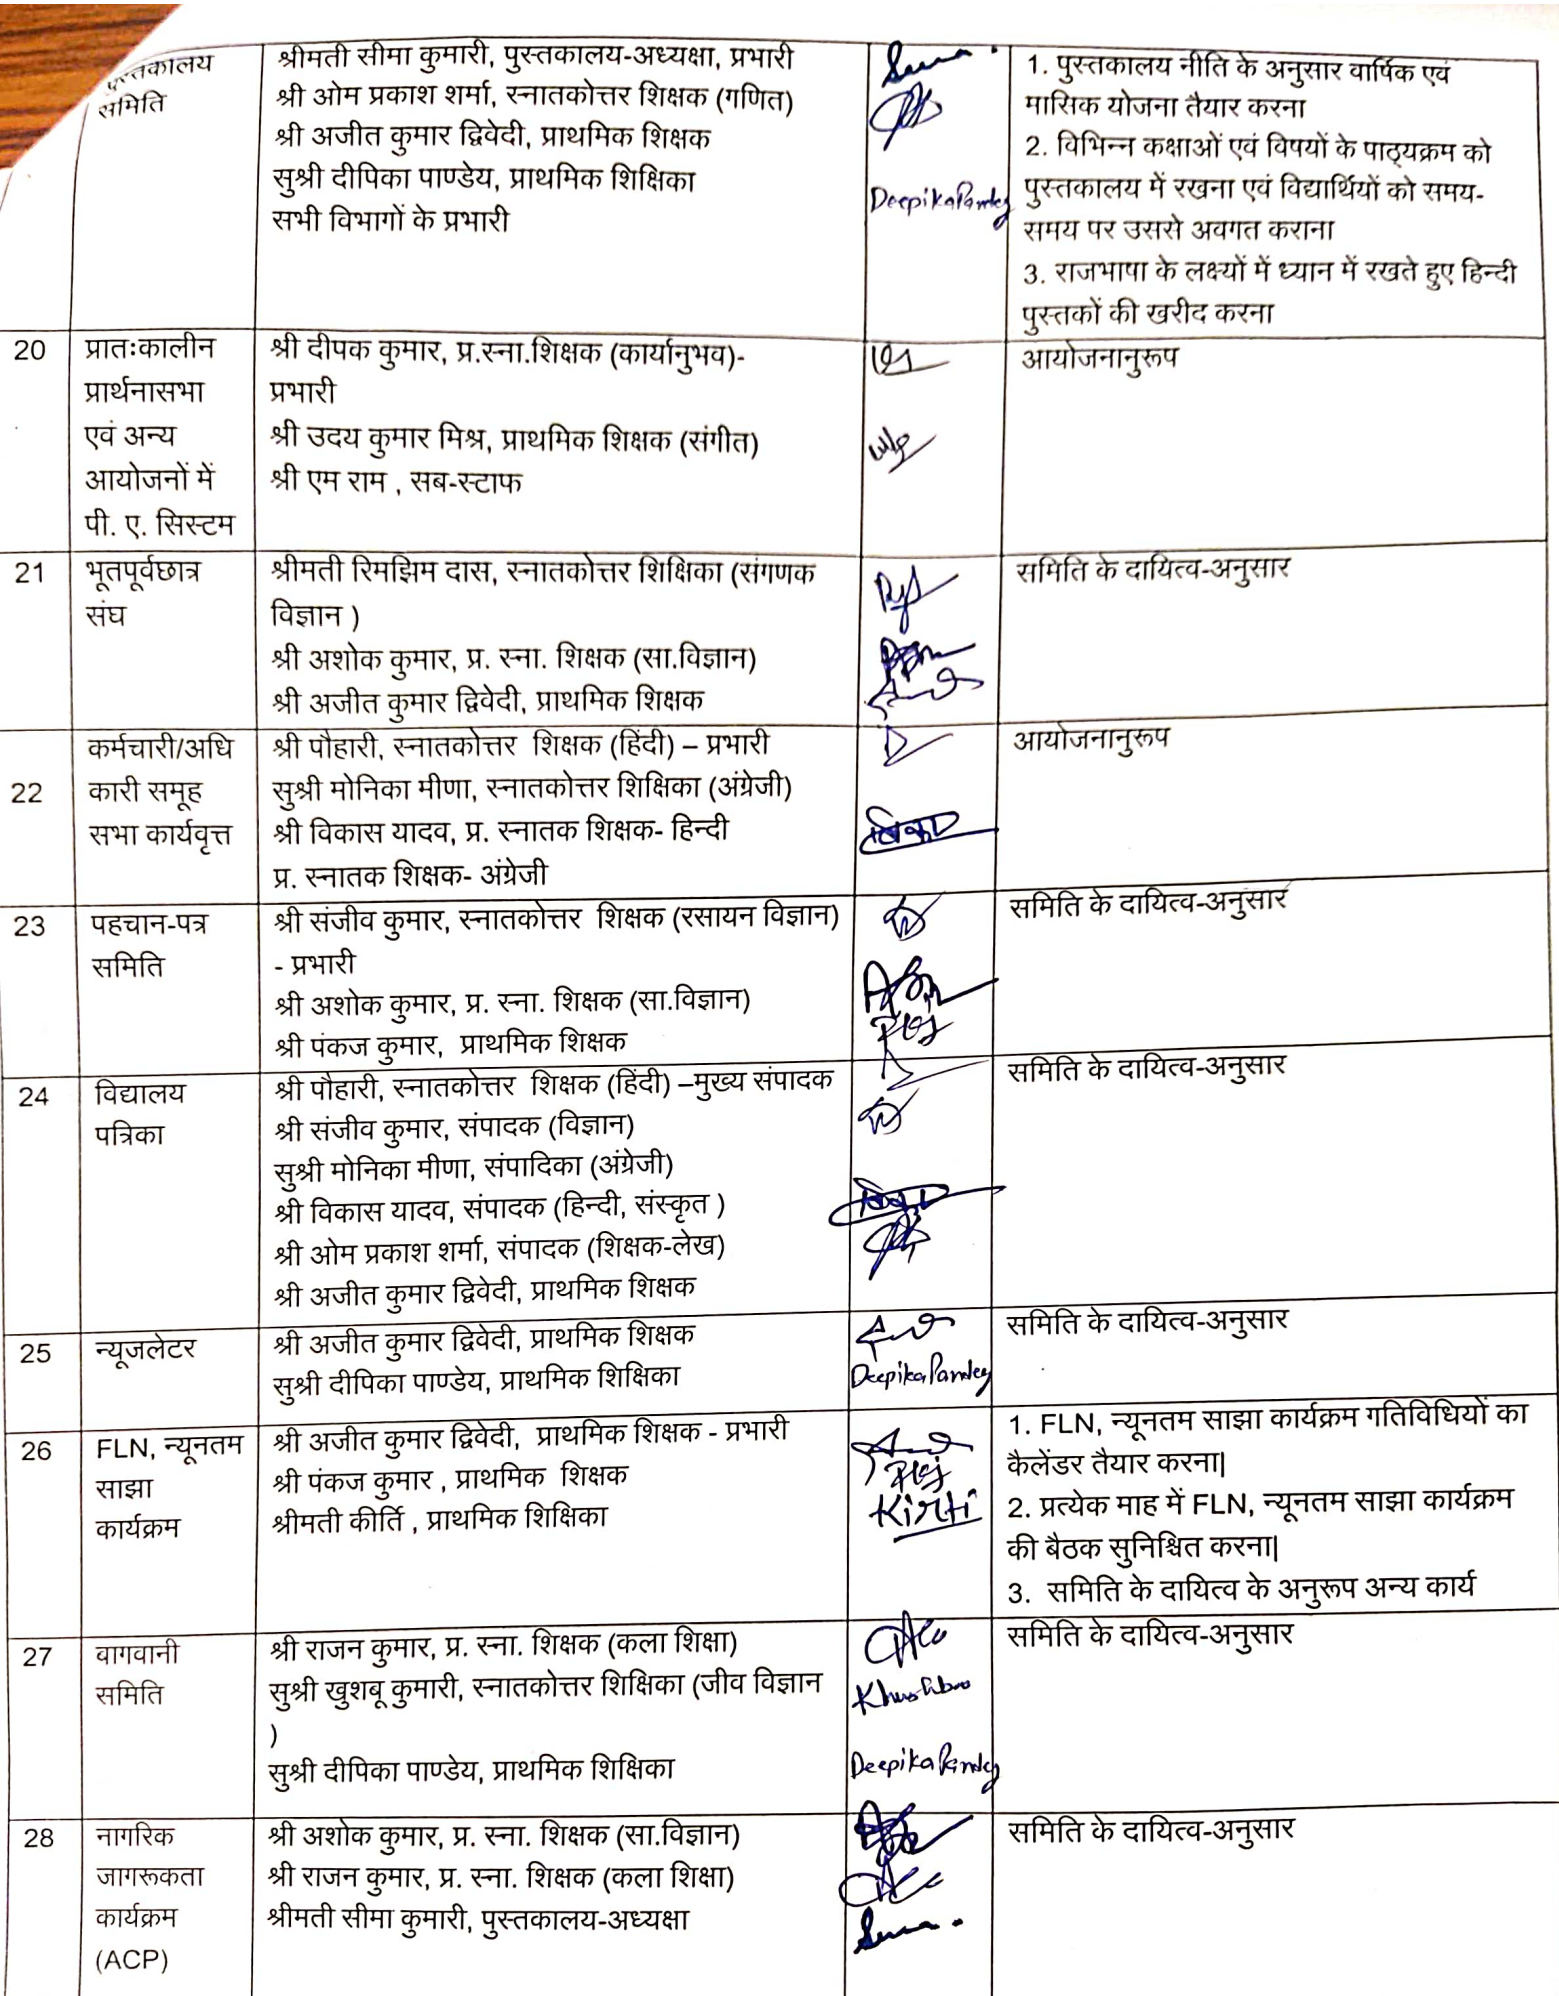 पुस्तकालय
समिति
श्रीमती सीमा कुमारी, पुस्तकालय-अध्यक्षा, प्रभारी
श्री ओम प्रकाश शर्मा, स्नातकोत्तर शिक्षक (गणित)
श्री अजीत कुमार द्विवेदी, प्राथमिक शिक्षक
सुश्री दीपिका पाण्डेय, प्राथमिक शिक्षिका
सभी विभागों के प्रभारी
Deepika Pandey
1. पुस्तकालय नीति के अनुसार वार्षिक एवं
मासिक योजना तैयार करना
2. विभिन्न कक्षाओं एवं विषयों के पाठ्यक्रम को
पुस्तकालय में रखना एवं विद्यार्थियों को समय-
समय पर उससे अवगत कराना
3. राजभाषा के लक्ष्यों में ध्यान में रखते हुए हिन्दी
पुस्तकों की खरीद करना
20
प्रातःकालीन
प्रार्थनासभा
एवं अन्य
आयोजनों में
पी. ए. सिस्टम
श्री दीपक कुमार, प्र.स्ना.शिक्षक (कार्यानुभव)-
प्रभारी
श्री उदय कुमार मिश्र, प्राथमिक शिक्षक (संगीत)
श्री एम राम , सब-स्टाफ
आयोजनानुरूप
21
भूतपूर्वछात्र
संघ
श्रीमती रिमझिम दास, स्नातकोत्तर शिक्षिका (संगणक
विज्ञान )
श्री अशोक कुमार, प्र. स्ना. शिक्षक (सा.विज्ञान)
श्री अजीत कुमार द्विवेदी, प्राथमिक शिक्षक
समिति के दायित्व-अनुसार
22
कर्मचारी/अधि
कारी समूह
सभा कार्यवृत्त
श्री पौहारी, स्नातकोत्तर शिक्षक (हिंदी) – प्रभारी
सुश्री मोनिका मीणा, स्नातकोत्तर शिक्षिका (अंग्रेजी)
श्री विकास यादव, प्र. स्नातक शिक्षक- हिन्दी
प्र. स्नातक शिक्षक- अंग्रेजी
आयोजनानुरूप
23
पहचान-पत्र
समिति
श्री संजीव कुमार, स्नातकोत्तर शिक्षक (रसायन विज्ञान)
- प्रभारी
श्री अशोक कुमार, प्र. स्ना. शिक्षक (सा.विज्ञान)
श्री पंकज कुमार, प्राथमिक शिक्षक
समिति के दायित्व-अनुसार
24
विद्यालय
पत्रिका
श्री पौहारी, स्नातकोत्तर शिक्षक (हिंदी) –मुख्य संपादक
श्री संजीव कुमार, संपादक (विज्ञान)
सुश्री मोनिका मीणा, संपादिका (अंग्रेजी)
श्री विकास यादव, संपादक (हिन्दी, संस्कृत )
श्री ओम प्रकाश शर्मा, संपादक (शिक्षक-लेख)
श्री अजीत कुमार द्विवेदी, प्राथमिक शिक्षक
समिति के दायित्व-अनुसार
25
न्यूजलेटर
श्री अजीत कुमार द्विवेदी, प्राथमिक शिक्षक
सुश्री दीपिका पाण्डेय, प्राथमिक शिक्षिका
Deepika Pandey
समिति के दायित्व-अनुसार
26
FLN, न्यूनतम
साझा
कार्यक्रम
श्री अजीत कुमार द्विवेदी, प्राथमिक शिक्षक - प्रभारी
श्री पंकज कुमार , प्राथमिक शिक्षक
श्रीमती कीर्ति , प्राथमिक शिक्षिका
Kirti
1. FLN, न्यूनतम साझा कार्यक्रम गतिविधियों का
कैलेंडर तैयार करना|
2. प्रत्येक माह में FLN, न्यूनतम साझा कार्यक्रम
की बैठक सुनिश्चित करना|
3. समिति के दायित्व के अनुरूप अन्य कार्य
27
वागवानी
समिति
श्री राजन कुमार, प्र. स्ना. शिक्षक (कला शिक्षा)
सुश्री खुशबू कुमारी, स्नातकोत्तर शिक्षिका (जीव विज्ञान
)
सुश्री दीपिका पाण्डेय, प्राथमिक शिक्षिका
Khushboo
Deepika Pandey
समिति के दायित्व-अनुसार
28
नागरिक
जागरूकता
कार्यक्रम
(ACP)
श्री अशोक कुमार, प्र. स्ना. शिक्षक (सा.विज्ञान)
श्री राजन कुमार, प्र. स्ना. शिक्षक (कला शिक्षा)
श्रीमती सीमा कुमारी, पुस्तकालय-अध्यक्षा
समिति के दायित्व-अनुसार